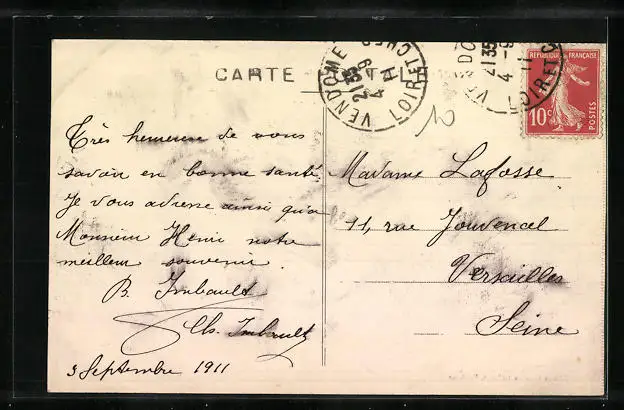 CARTE POSTALE
VENDOME
21 35
4 -9
11
LOIR ET CHER
VENDO
21 35
4 -9
11
LOIR ET C
REPUBLIQUE FRANÇAISE
10c
POSTES
Très heureuse de vous
savoir en bonne santé
Je vous adresse ainsi qu'a
Monsieur Henri notre
meilleur souvenir.
B. Imbault
Ch. Imbault
3 Septembre 1911
Madame Lafosse
11, rue Jouvencel
Versailles
Seine